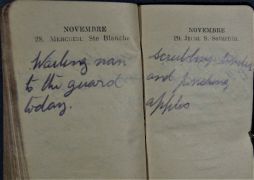 NOVEMBRE
28. MERCREDI. Ste Blanche
Waiting man
to the guard
today.
NOVEMBRE
29. JEUDI. S. Saturnin
Scrubbing
and pinching
apples